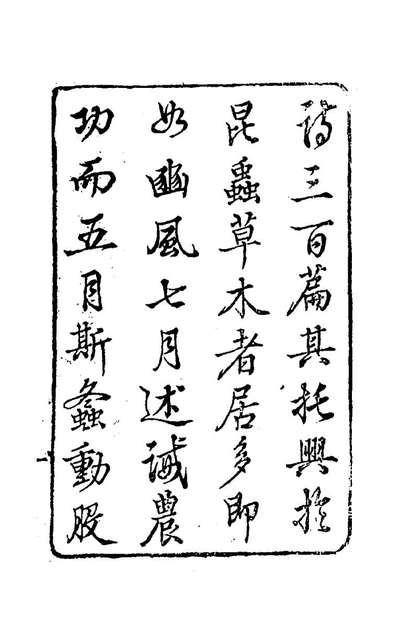 詩三百篇其托興於
昆蟲草木者居多即
如豳風七月述誠農
功而五月斯螽動股